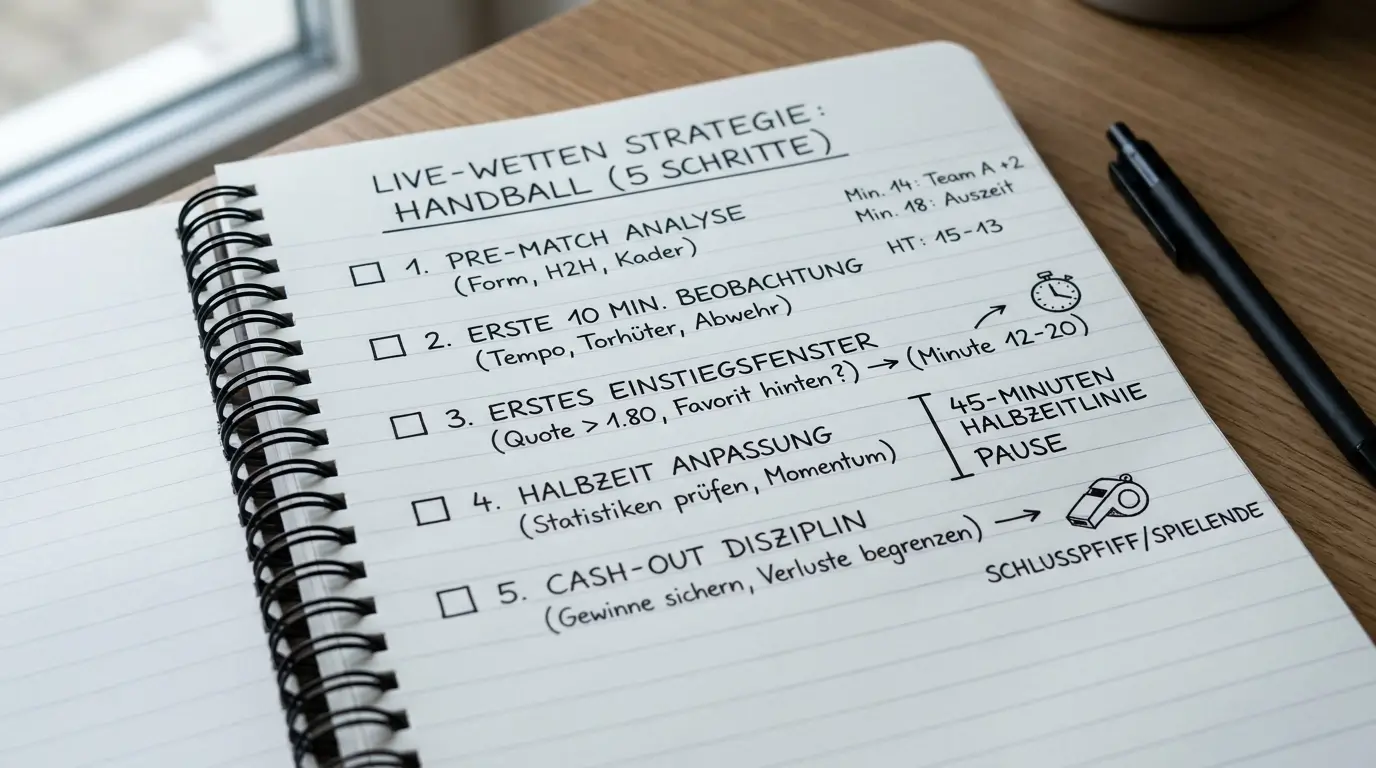 LIVE-WETTEN STRATEGIE:
HANDBALL (5 SCHRITTE)
Min. 14: Team A +2
Min. 18: Auszeit
HT: 15-13
1. PRE-MATCH ANALYSE
(Form, H2H, Kader)
2. ERSTE 10 MIN. BEOBACHTUNG
(Tempo, Torhüter, Abwehr)
3. ERSTES EINSTIEGSFENSTER
(Quote > 1.80, Favorit hinten?) → (Minute 12-20)
45-MINUTEN
HALBZEITLINIE
PAUSE
4. HALBZEIT ANPASSUNG
(Statistiken prüfen, Momentum)
5. CASH-OUT DISZIPLIN
(Gewinne sichern, Verluste begrenzen) →
SCHLUSSPFIFF/SPIELENDE